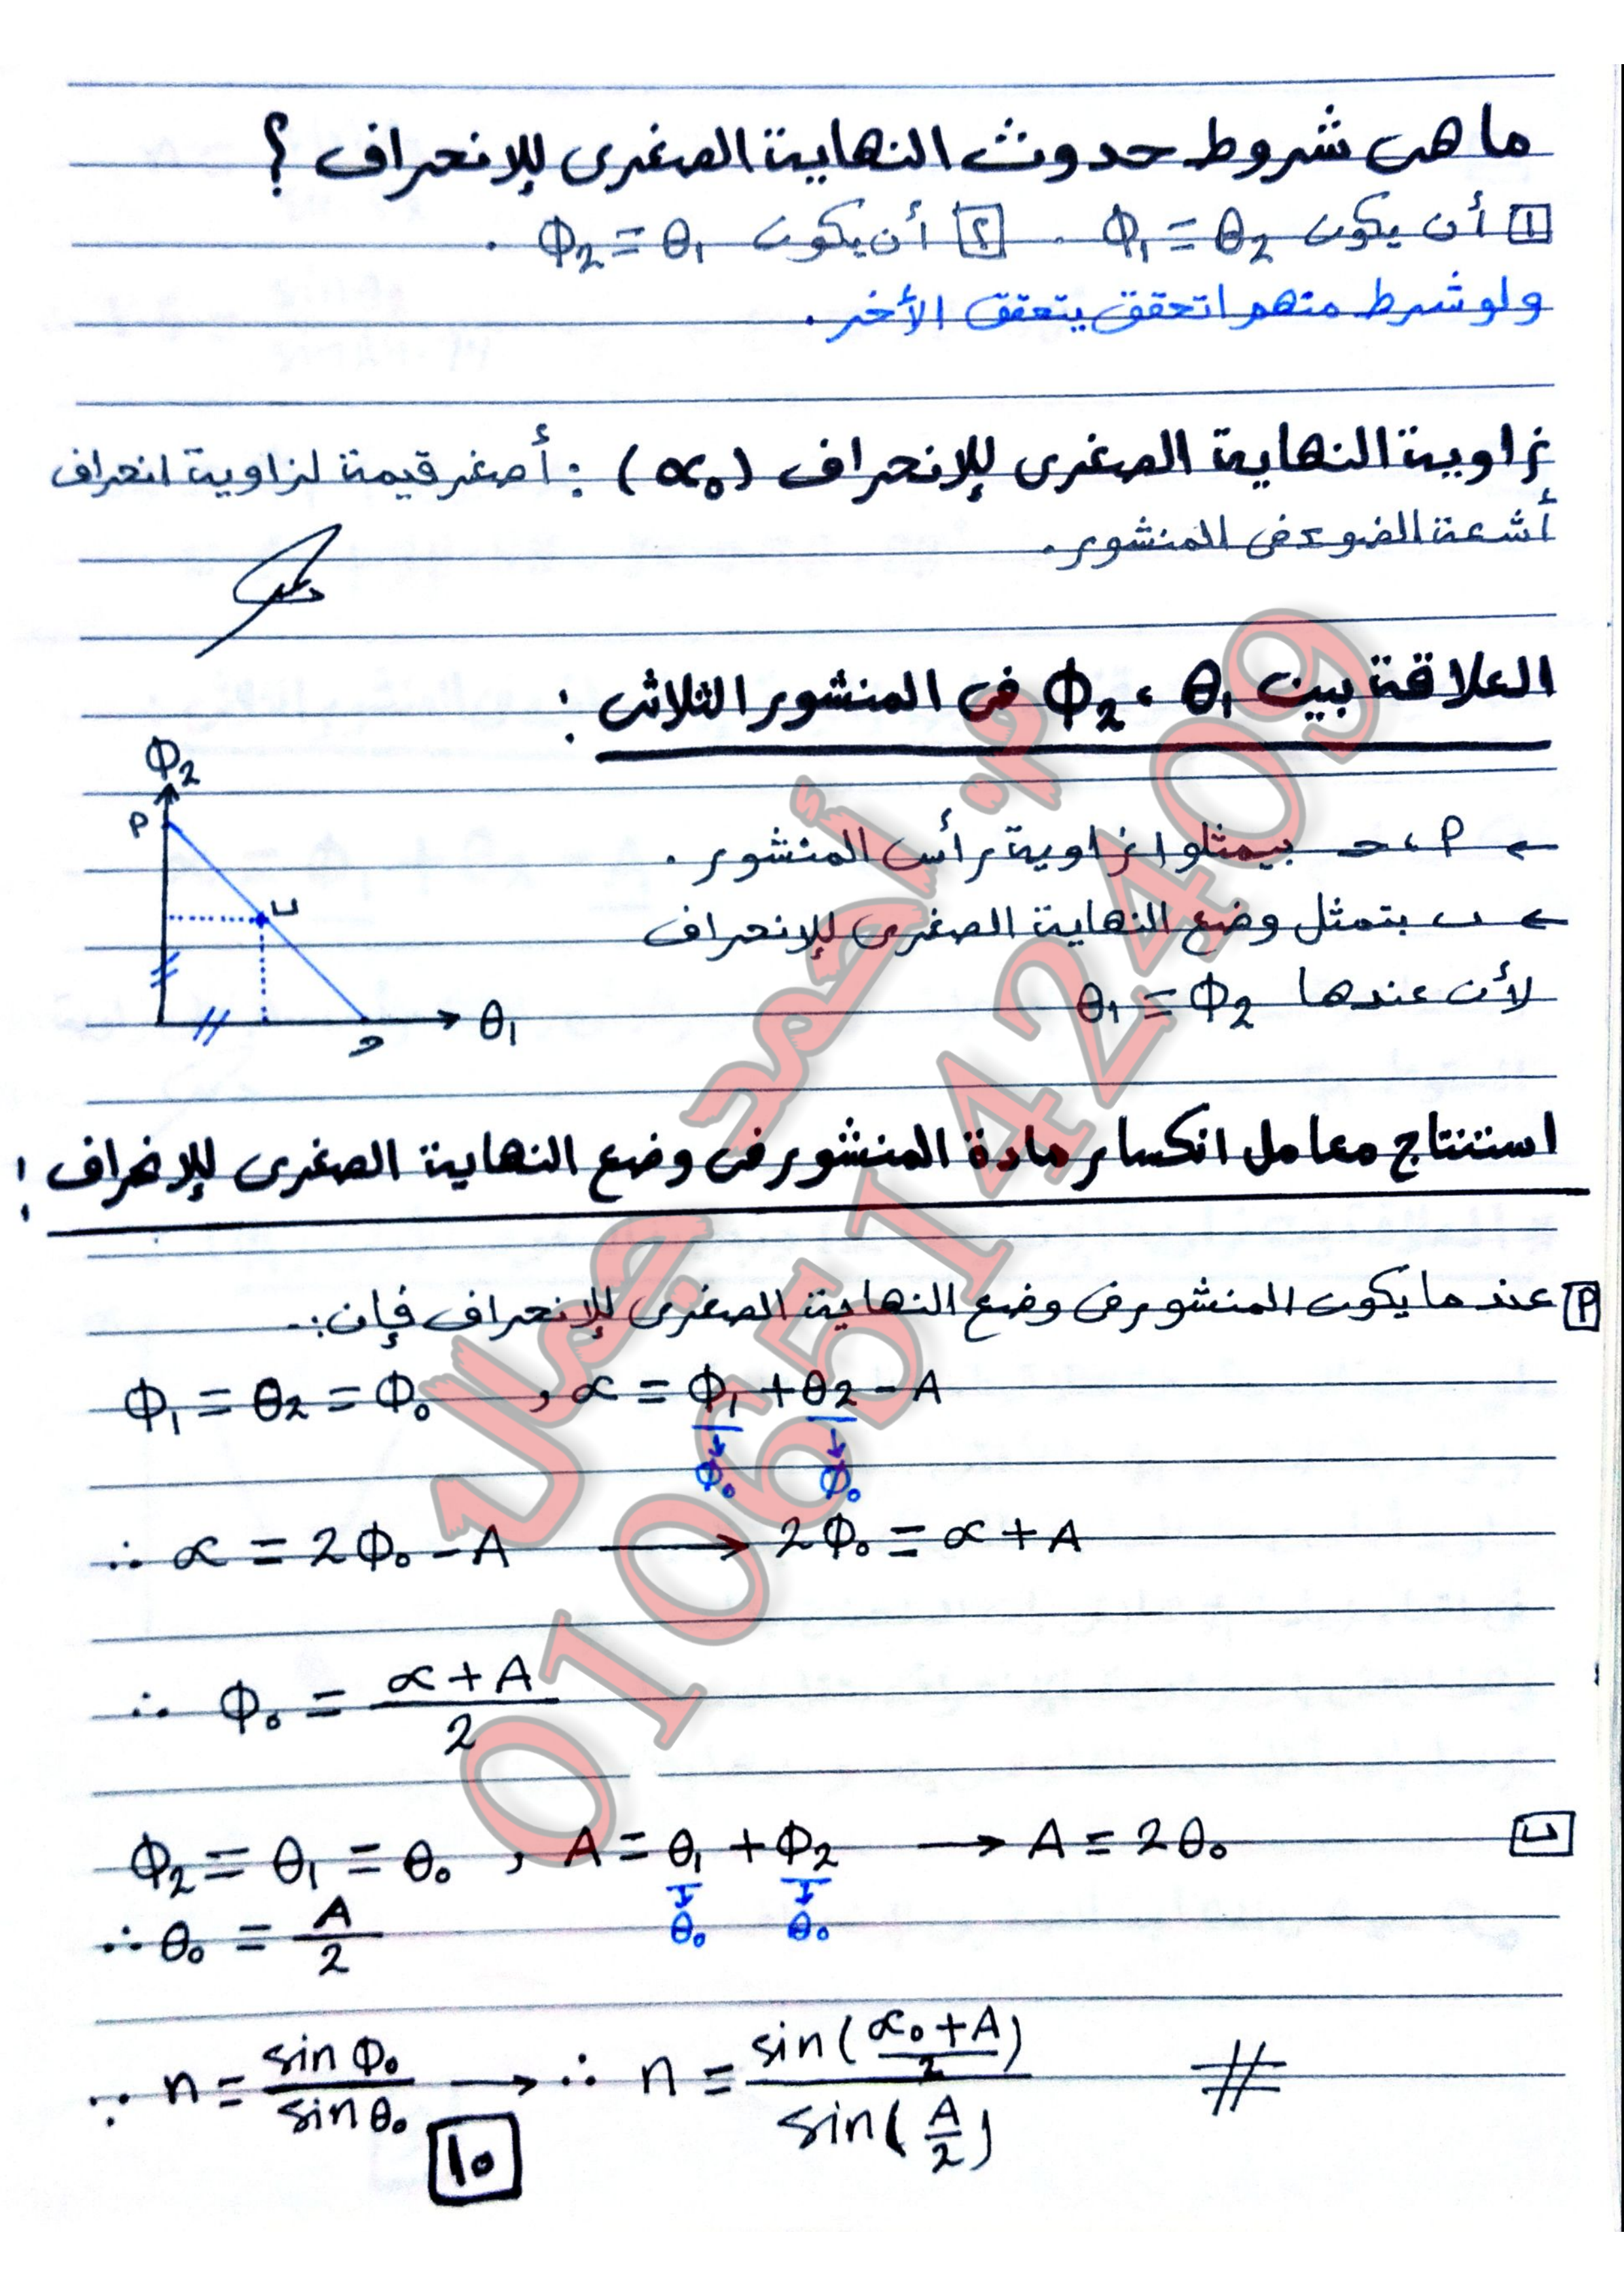 ما هى شروط حدوث النهاية الصغرى للإنحراف ؟
١ أن يكون Φ₁ = θ₂ . ٢ أن يكون Φ₂ = θ₁ .
ولو شرط منهم اتحقق يتحقق الأخر .
زاوية النهاية الصغرى للإنحراف (α₀) : أصغر قيمة لزاوية انحراف
أشعة الضوء فى المنشور .
العلاقة بين θ₁ ، Φ₂ فى المنشور الثلاثى :
Φ₂
م
ب
ح
θ₁
← م ، ح بيمثلوا زاوية رأس المنشور .
← ب بتمثل وضع النهاية الصغرى للإنحراف
لأن عندها θ₁ = Φ₂
استنتاج معامل انكسار مادة المنشور فى وضع النهاية الصغرى للإنحراف :
م عندما يكون المنشور فى وضع النهاية الصغرى للإنحراف فإن :-
Φ₁ = θ₂ = Φ₀ , α = Φ₁ + θ₂ - A
↓ ↓
Φ₀ Φ₀
∴ α = 2Φ₀ - A → 2Φ₀ = α + A
∴ Φ₀ = (α + A)/2
ب Φ₂ = θ₁ = θ₀ , A = θ₁ + Φ₂ → A = 2θ₀
↓ ↓
θ₀ θ₀
∴ θ₀ = A/2
∵ n = sin Φ₀ / sin θ₀ → ∴ n = sin((α₀ + A)/2) / sin(A/2) #
10
م. أحمد جمال
01065142409